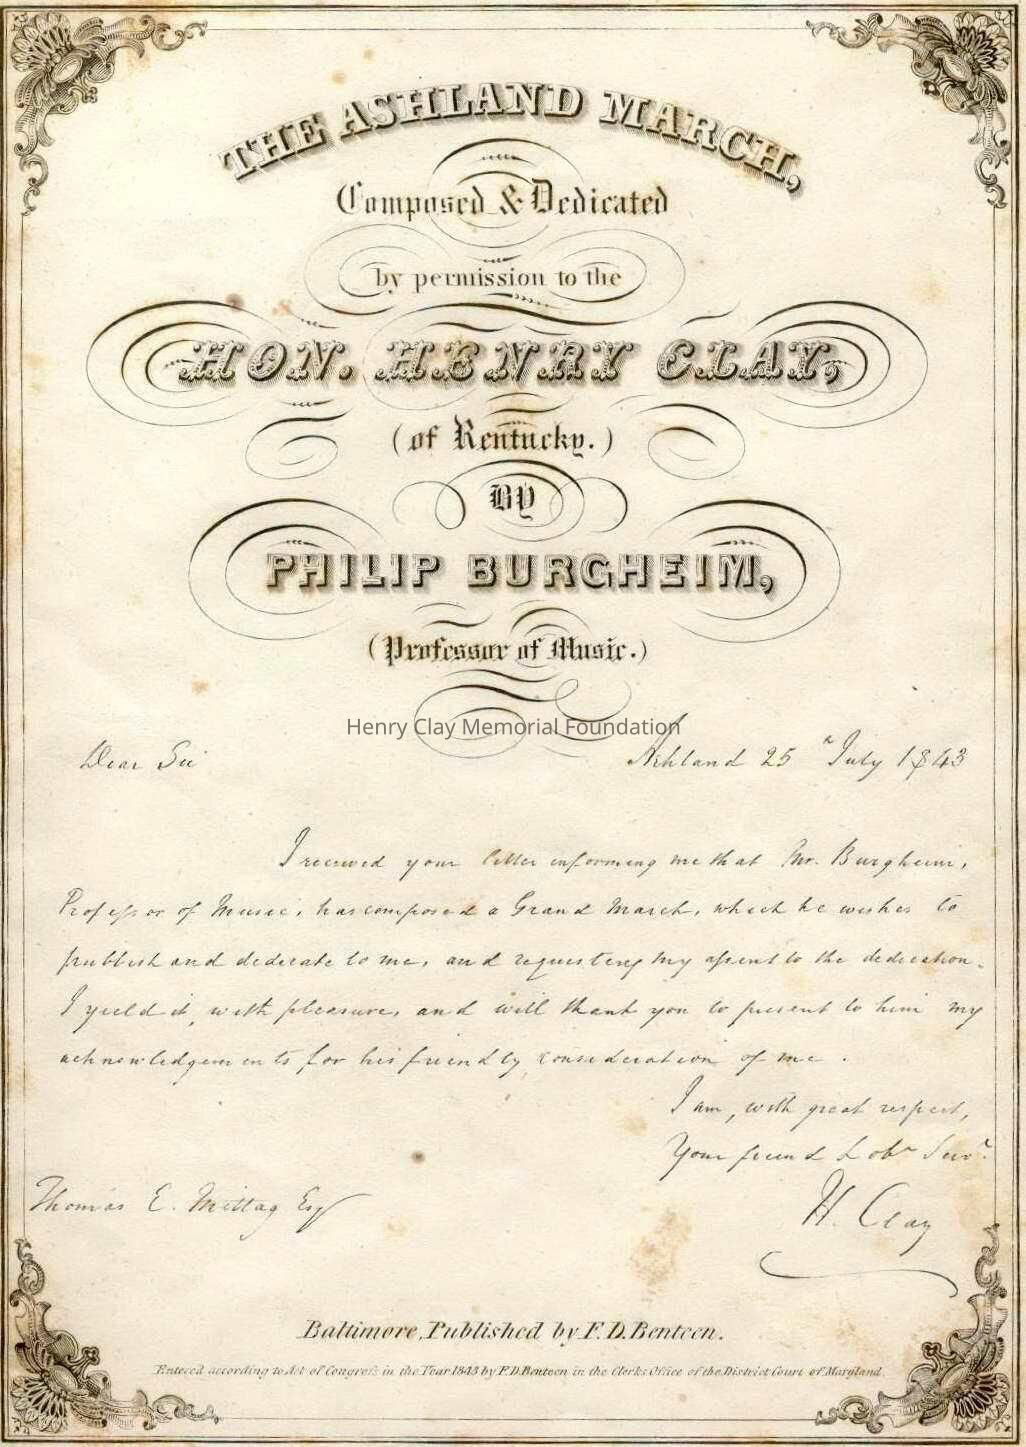 THE ASHLAND MARCH,
Composed & Dedicated
by permission to the
HON. HENRY CLAY,
(of Kentucky.)
BY
PHILIP BURGHEIM,
(Professor of Music.)
Henry Clay Memorial Foundation
Dear Sir Ashland 25th July 1843
I received your letter informing me that Mr. Burgheim,
Professor of Music, has composed a Grand March, which he wishes to
publish and dedicate to me, and requesting my assent to the dedication.
I yield it, with pleasure, and will thank you to present to him my
acknowledgments for his friendly consideration of me.
I am, with great respect,
Your friend & obt Servt.
Thomas E. Mittag Esq H. Clay
Baltimore, Published by F. D. Benteen.
Entered according to Act of Congress in the Year 1843 by F. D. Benteen in the Clerks Office of the District Court of Maryland.